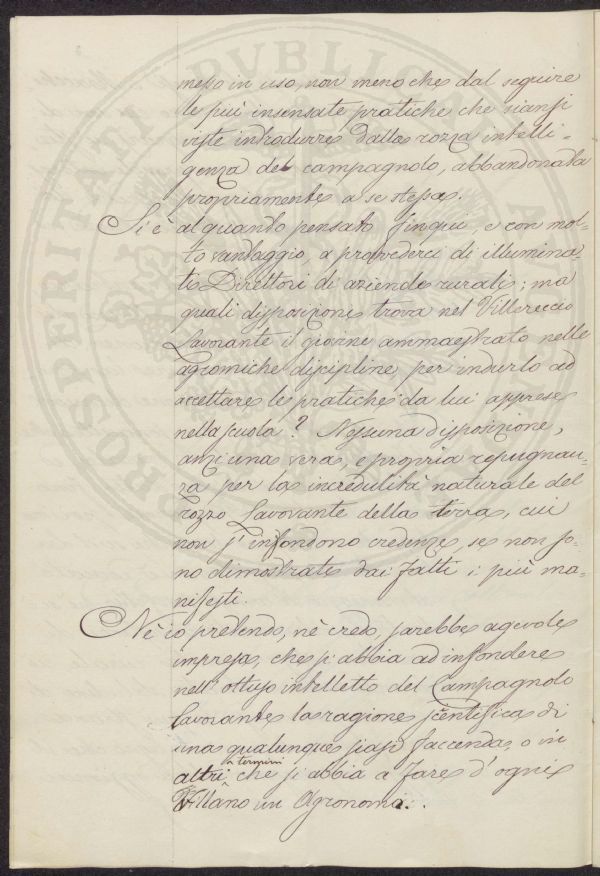 messo in uso, non meno che dal seguire
le più insensate pratiche che siansi
viste introdurre dalla rozza intelli-
genza del campagnolo, abbandonata
propriamente a se stessa.
Si è alquando pensato finqui, e con mol-
to vantaggio, a provederci di illumina-
ti Direttori di aziende rurali; ma
quali disposizioni trova nel Villereccio
Lavorante il giovine ammaestrato nelle
agromiche discipline, per indurlo ad
accettare le pratiche da lui apprese
nella scuola? Nessuna disposizione,
anzi una vera, e propria repugnan-
za per la incredulità naturale del
rozzo Lavorante della terra, cui
non s'infondono credenze se non so-
no dimostrate dai fatti i più ma-
nifesti.
Nè io pretendo, nè credo, sarebbe agevole
impresa, che si abbia ad infondere
nell'ottuso intelletto del Campagnolo
Lavorante, la ragione scentifica di
una qualunque siasi faccenda, o in
altri termini che si abbia a fare d'ogni
Villano un Agronomo.
PVBLICA
PROSPERITATI